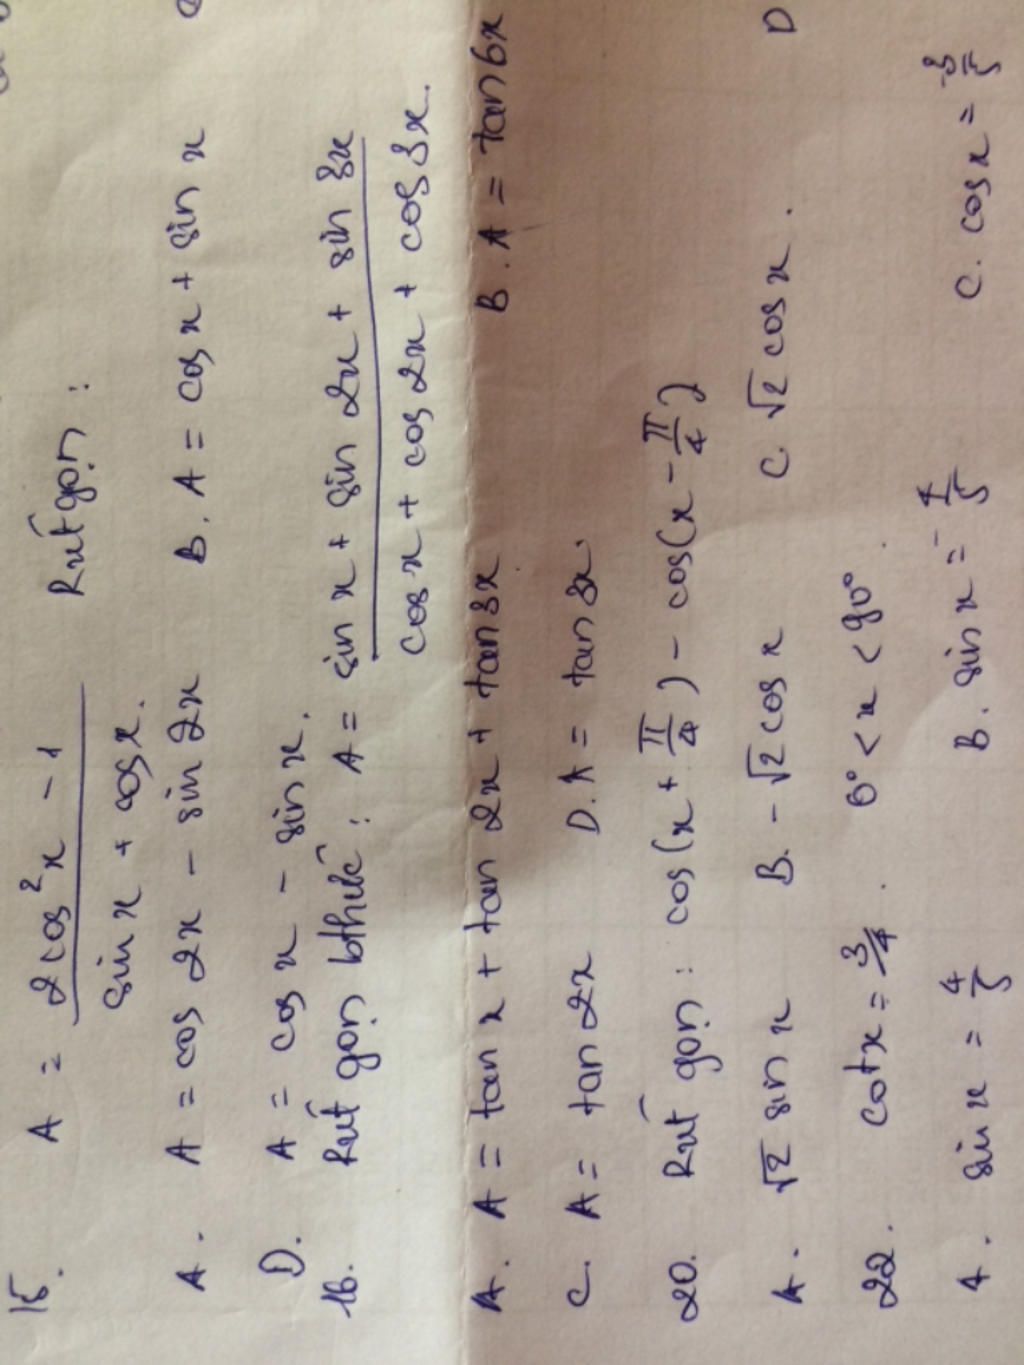 15. A = (2cos²x - 1)/(sin x + cos x). Rút gọn :
A. A = cos 2x - sin 2x B. A = cos x + sin x
D. A = cos x - sin x.
16. Rút gọn bthức : A = (sin x + sin 2x + sin 3x)/(cos x + cos 2x + cos 3x).
A. A = tan x + tan 2x + tan 3x B. A = tan 6x
C. A = tan 2x D. A = tan 3x.
20. Rút gọn : cos(x + π/4) - cos(x - π/4)
A. √2 sin x B. -√2 cos x C √2 cos x. D
22. cot x = 3/4. 0° < x < 90°.
A. sin x = 4/5 B. sin x = -4/5 C. cos x =